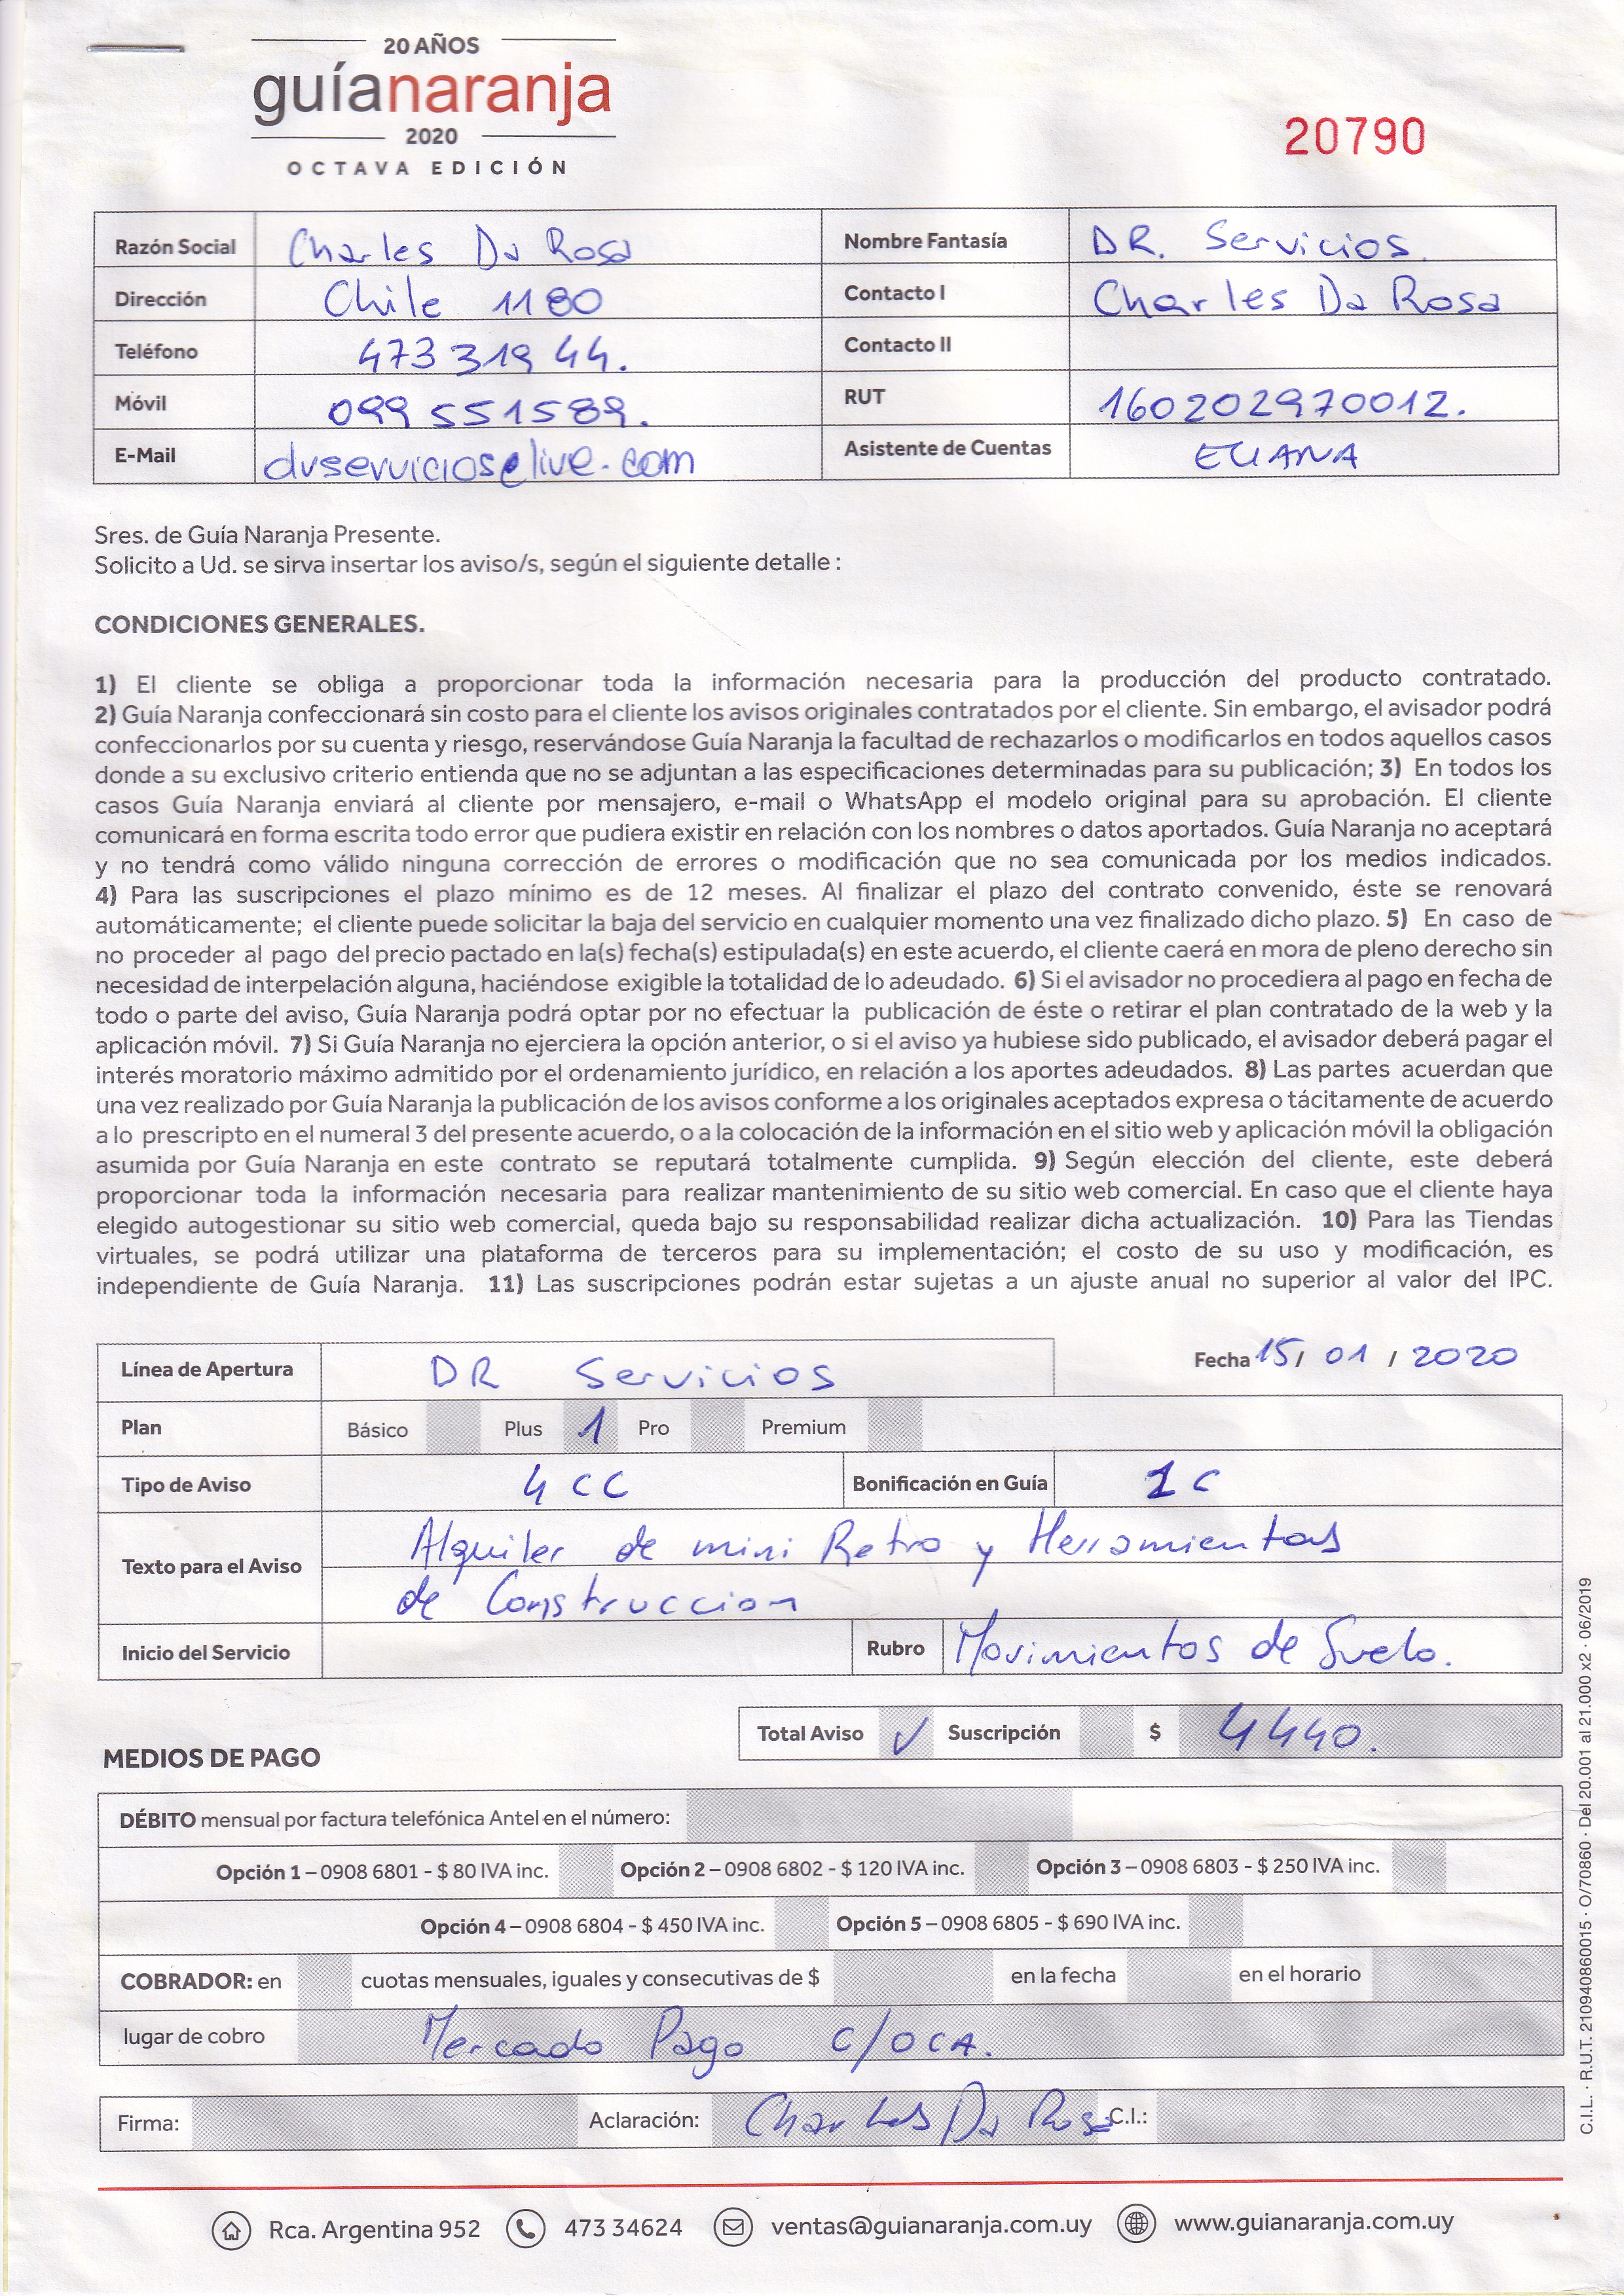 20 AÑOS
guíanaranja
2020
OCTAVA EDICIÓN
20790
Razón Social Charles Da Rosa Nombre Fantasía DR. Servicios.
Dirección Chile 1180 Contacto I Charles Da Rosa
Teléfono 473 319 44. Contacto II
Móvil 099 551589. RUT 160202970012.
E-Mail drservicios@live.com Asistente de Cuentas ELIANA
Sres. de Guía Naranja Presente.
Solicito a Ud. se sirva insertar los aviso/s, según el siguiente detalle :
CONDICIONES GENERALES.
1) El cliente se obliga a proporcionar toda la información necesaria para la producción del producto contratado.
2) Guía Naranja confeccionará sin costo para el cliente los avisos originales contratados por el cliente. Sin embargo, el avisador podrá
confeccionarlos por su cuenta y riesgo, reservándose Guía Naranja la facultad de rechazarlos o modificarlos en todos aquellos casos
donde a su exclusivo criterio entienda que no se adjuntan a las especificaciones determinadas para su publicación; 3) En todos los
casos Guía Naranja enviará al cliente por mensajero, e-mail o WhatsApp el modelo original para su aprobación. El cliente
comunicará en forma escrita todo error que pudiera existir en relación con los nombres o datos aportados. Guía Naranja no aceptará
y no tendrá como válido ninguna corrección de errores o modificación que no sea comunicada por los medios indicados.
4) Para las suscripciones el plazo mínimo es de 12 meses. Al finalizar el plazo del contrato convenido, éste se renovará
automáticamente; el cliente puede solicitar la baja del servicio en cualquier momento una vez finalizado dicho plazo. 5) En caso de
no proceder al pago del precio pactado en la(s) fecha(s) estipulada(s) en este acuerdo, el cliente caerá en mora de pleno derecho sin
necesidad de interpelación alguna, haciéndose exigible la totalidad de lo adeudado. 6) Si el avisador no procediera al pago en fecha de
todo o parte del aviso, Guía Naranja podrá optar por no efectuar la publicación de éste o retirar el plan contratado de la web y la
aplicación móvil. 7) Si Guía Naranja no ejerciera la opción anterior, o si el aviso ya hubiese sido publicado, el avisador deberá pagar el
interés moratorio máximo admitido por el ordenamiento jurídico, en relación a los aportes adeudados. 8) Las partes acuerdan que
una vez realizado por Guía Naranja la publicación de los avisos conforme a los originales aceptados expresa o tácitamente de acuerdo
a lo prescripto en el numeral 3 del presente acuerdo, o a la colocación de la información en el sitio web y aplicación móvil la obligación
asumida por Guía Naranja en este contrato se reputará totalmente cumplida. 9) Según elección del cliente, este deberá
proporcionar toda la información necesaria para realizar mantenimiento de su sitio web comercial. En caso que el cliente haya
elegido autogestionar su sitio web comercial, queda bajo su responsabilidad realizar dicha actualización. 10) Para las Tiendas
virtuales, se podrá utilizar una plataforma de terceros para su implementación; el costo de su uso y modificación, es
independiente de Guía Naranja. 11) Las suscripciones podrán estar sujetas a un ajuste anual no superior al valor del IPC.
Línea de Apertura DR Servicios Fecha 15/ 01 / 2020
Plan Básico Plus 1 Pro Premium
Tipo de Aviso 4 CC Bonificación en Guía 1 C
Texto para el Aviso Alquiler de mini Retro y Herramientas
de Construccion
Inicio del Servicio Rubro Movimientos de Suelo.
Total Aviso ✓ Suscripción $ 4440.
MEDIOS DE PAGO
DÉBITO mensual por factura telefónica Antel en el número:
Opción 1 – 0908 6801 - $ 80 IVA inc. Opción 2 – 0908 6802 - $ 120 IVA inc. Opción 3 – 0908 6803 - $ 250 IVA inc.
Opción 4 – 0908 6804 - $ 450 IVA inc. Opción 5 – 0908 6805 - $ 690 IVA inc.
COBRADOR: en cuotas mensuales, iguales y consecutivas de $ en la fecha en el horario
lugar de cobro Mercado Pago C/OCA.
Firma: Aclaración: Charles Da Rosa C.I.:
Rca. Argentina 952 473 34624 ventas@guianaranja.com.uy www.guianaranja.com.uy
C.I.L. · R.U.T. 210940860015 · O/70860 · Del 20.001 al 21.000 x2 · 06/2019